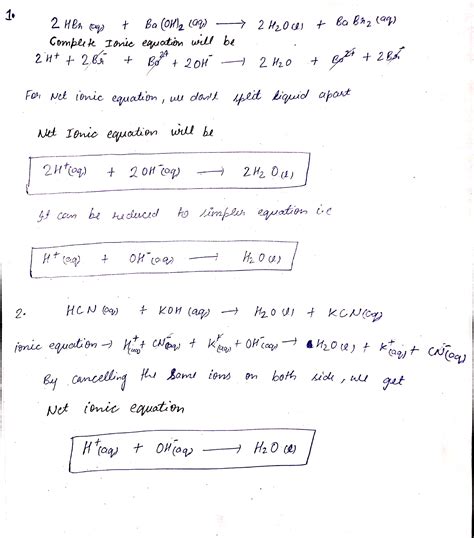 1. 2 HBr (aq) + Ba(OH)₂ (aq) ⟶ 2 H₂O(l) + BaBr₂ (aq)
Complete Ionic equation will be
2H⁺ + 2Br⁻ + Ba²⁺ + 2OH⁻ ⟶ 2 H₂O + Ba²⁺ + 2Br⁻
For Net ionic equation, we don't split liquid apart
Net Ionic equation will be
2H⁺(aq) + 2OH⁻(aq) ⟶ 2H₂O(l)
It can be reduced to simpler equation i.e
H⁺(aq) + OH⁻(aq) ⟶ H₂O(l)
2. HCN(aq) + KOH(aq) ⟶ H₂O(l) + KCN(aq)
ionic equation → H⁺(aq) + CN⁻(aq) + K⁺(aq) + OH⁻(aq) → H₂O(l) + K⁺(aq) + CN⁻(aq)
By cancelling the same ions on both side, we get
Net ionic equation
H⁺(aq) + OH⁻(aq) ⟶ H₂O(l)